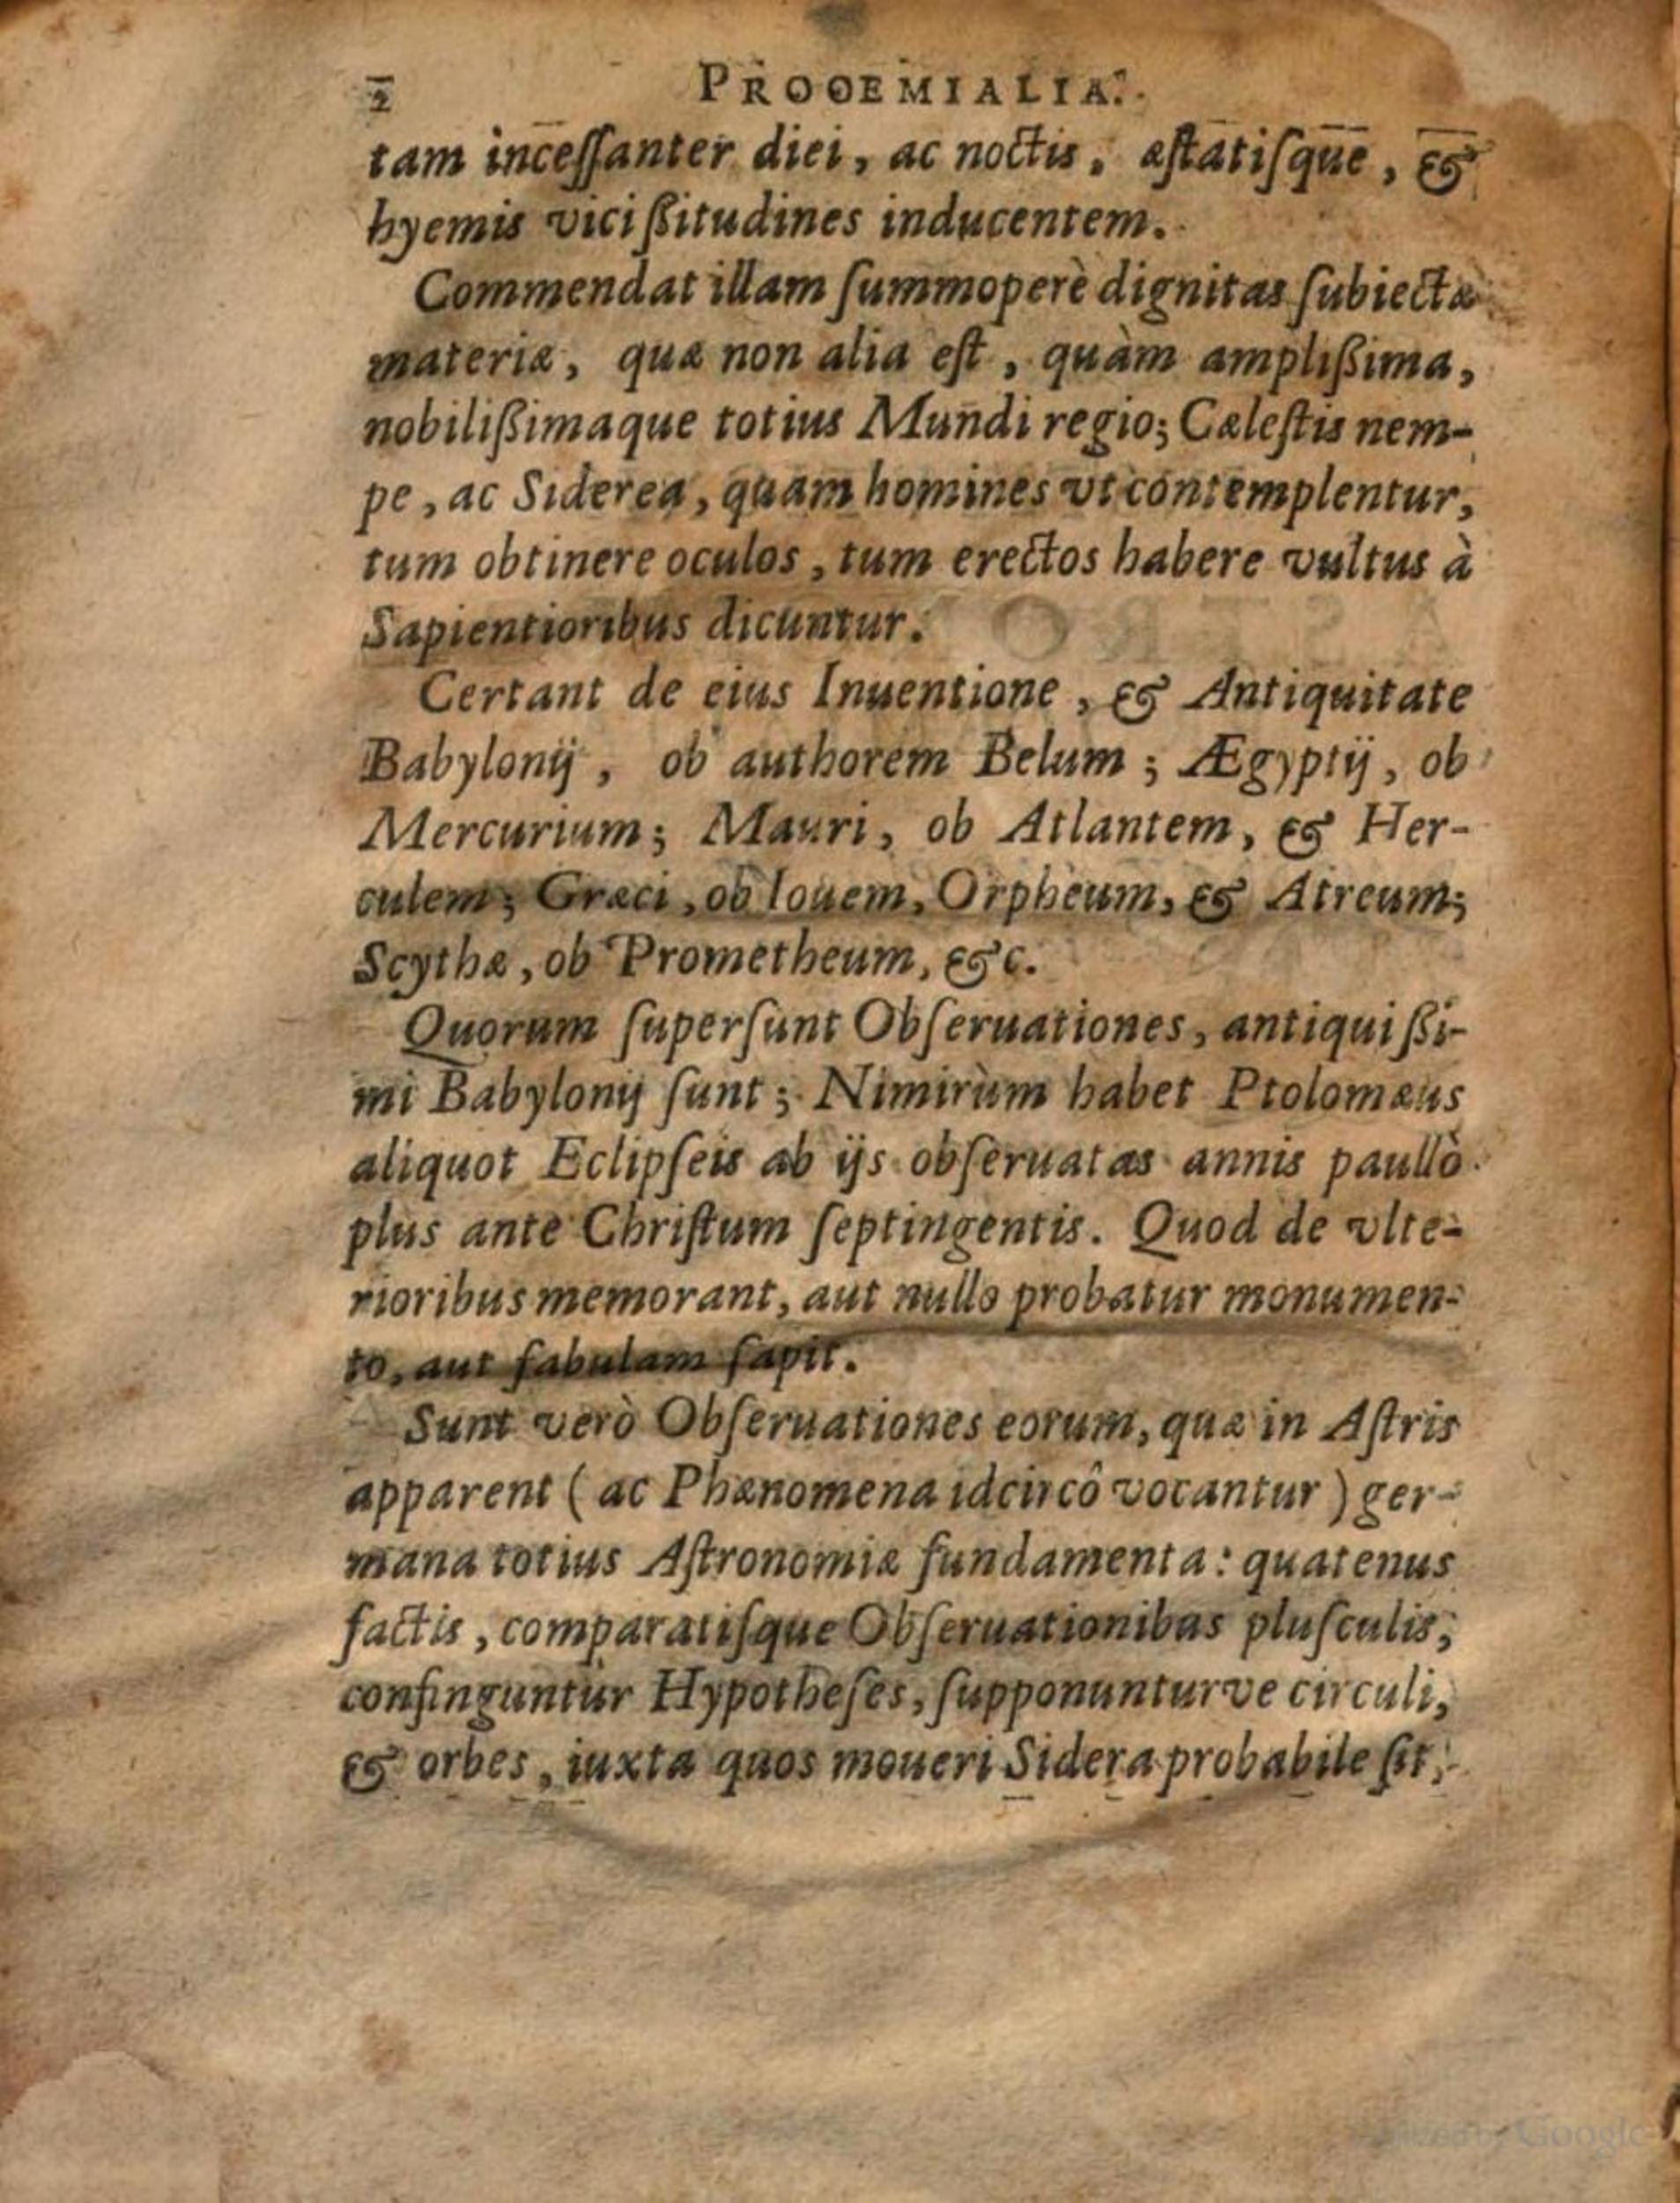 2 PROOEMIALIA.
tam inceſſanter diei, ac noctis, æſtatiſque, &
hyemis viciſsitudines inducentem.
Commendat illam ſummoperè dignitas ſubiectæ
materiæ, quæ non alia eſt, quàm ampliſsima,
nobiliſsimaque totius Mundi regio; Cæleſtis nem-
pe, ac Siderea, quam homines vt contemplentur,
tum obtinere oculos, tum erectos habere vultus à
Sapientioribus dicuntur.
Certant de eius Inuentione, & Antiquitate
Babylonij, ob authorem Belum; Ægyptij, ob
Mercurium; Mauri, ob Atlantem, & Her-
culem; Græci, ob Iouem, Orpheum, & Atreum;
Scythæ, ob Prometheum, &c.
Quorum ſuperſunt Obſeruationes, antiquiſsi-
mi Babylonij ſunt; Nimirùm habet Ptolomæus
aliquot Eclipſeis ab ijs obſeruatas annis paullò
plus ante Chriſtum ſeptingentis. Quod de vlte-
rioribus memorant, aut nullo probatur monumen-
to, aut fabulam ſapit.
Sunt verò Obſeruationes eorum, quæ in Aſtris
apparent (ac Phænomena idcircô vocantur) ger-
mana totius Aſtronomiæ fundamenta: quatenus
factis, comparatiſque Obſeruationibus pluſculis,
confinguntur Hypotheſes, ſupponunturve circuli,
& orbes, iuxta quos moueri Sidera probabile ſit,
Google